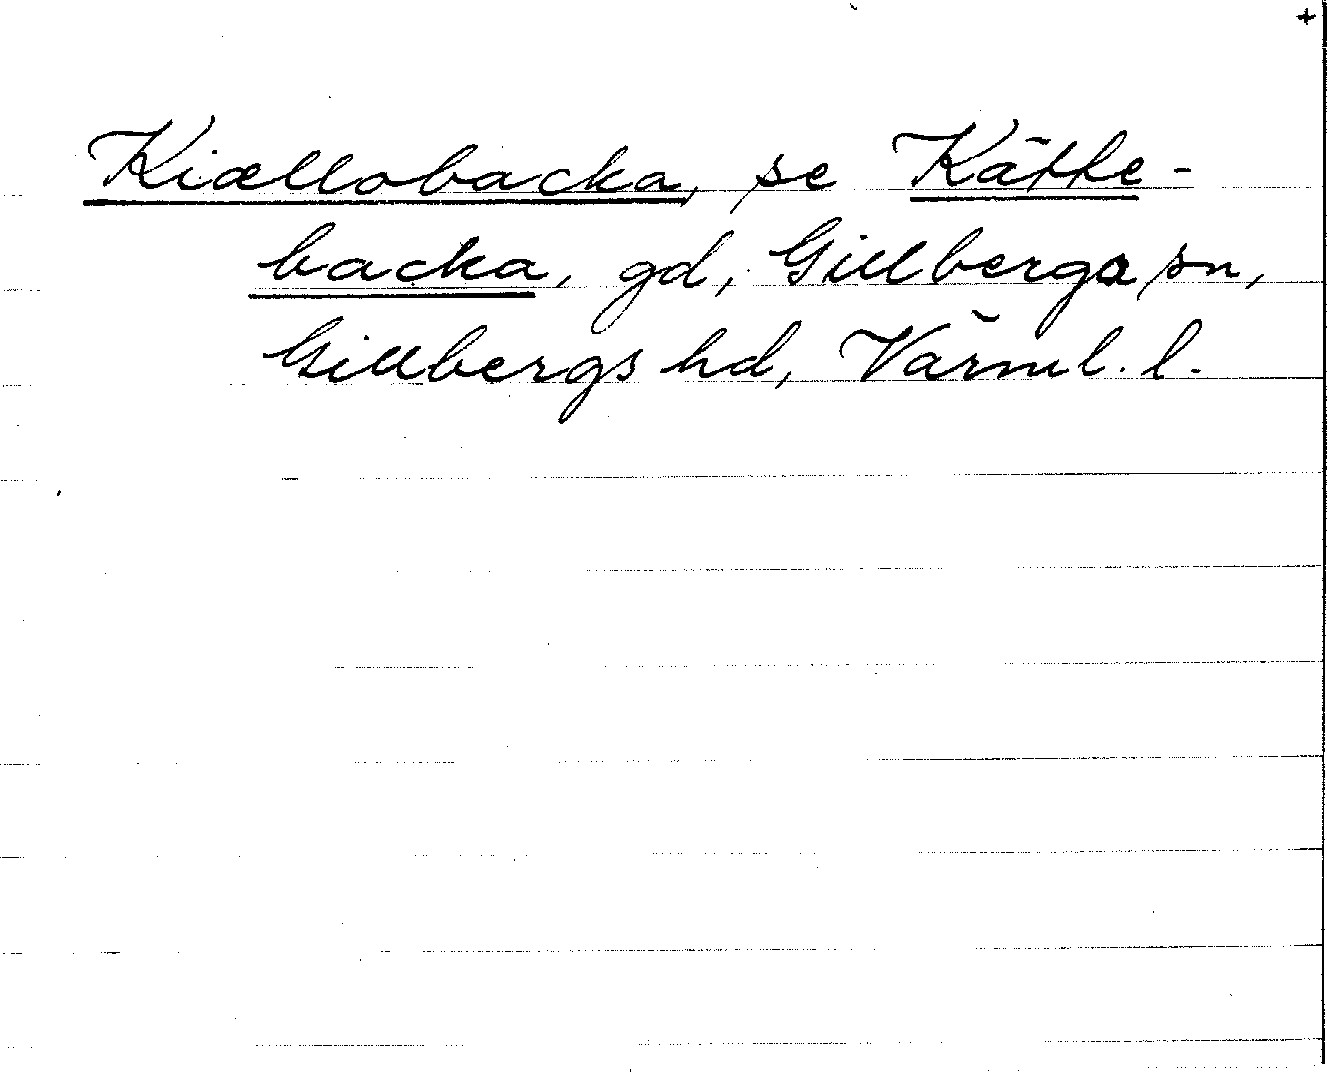 +
Kiællobacka, se Kätte-
backa, gd, Gillberga sn,
Gillbergs hd, Värml. l.